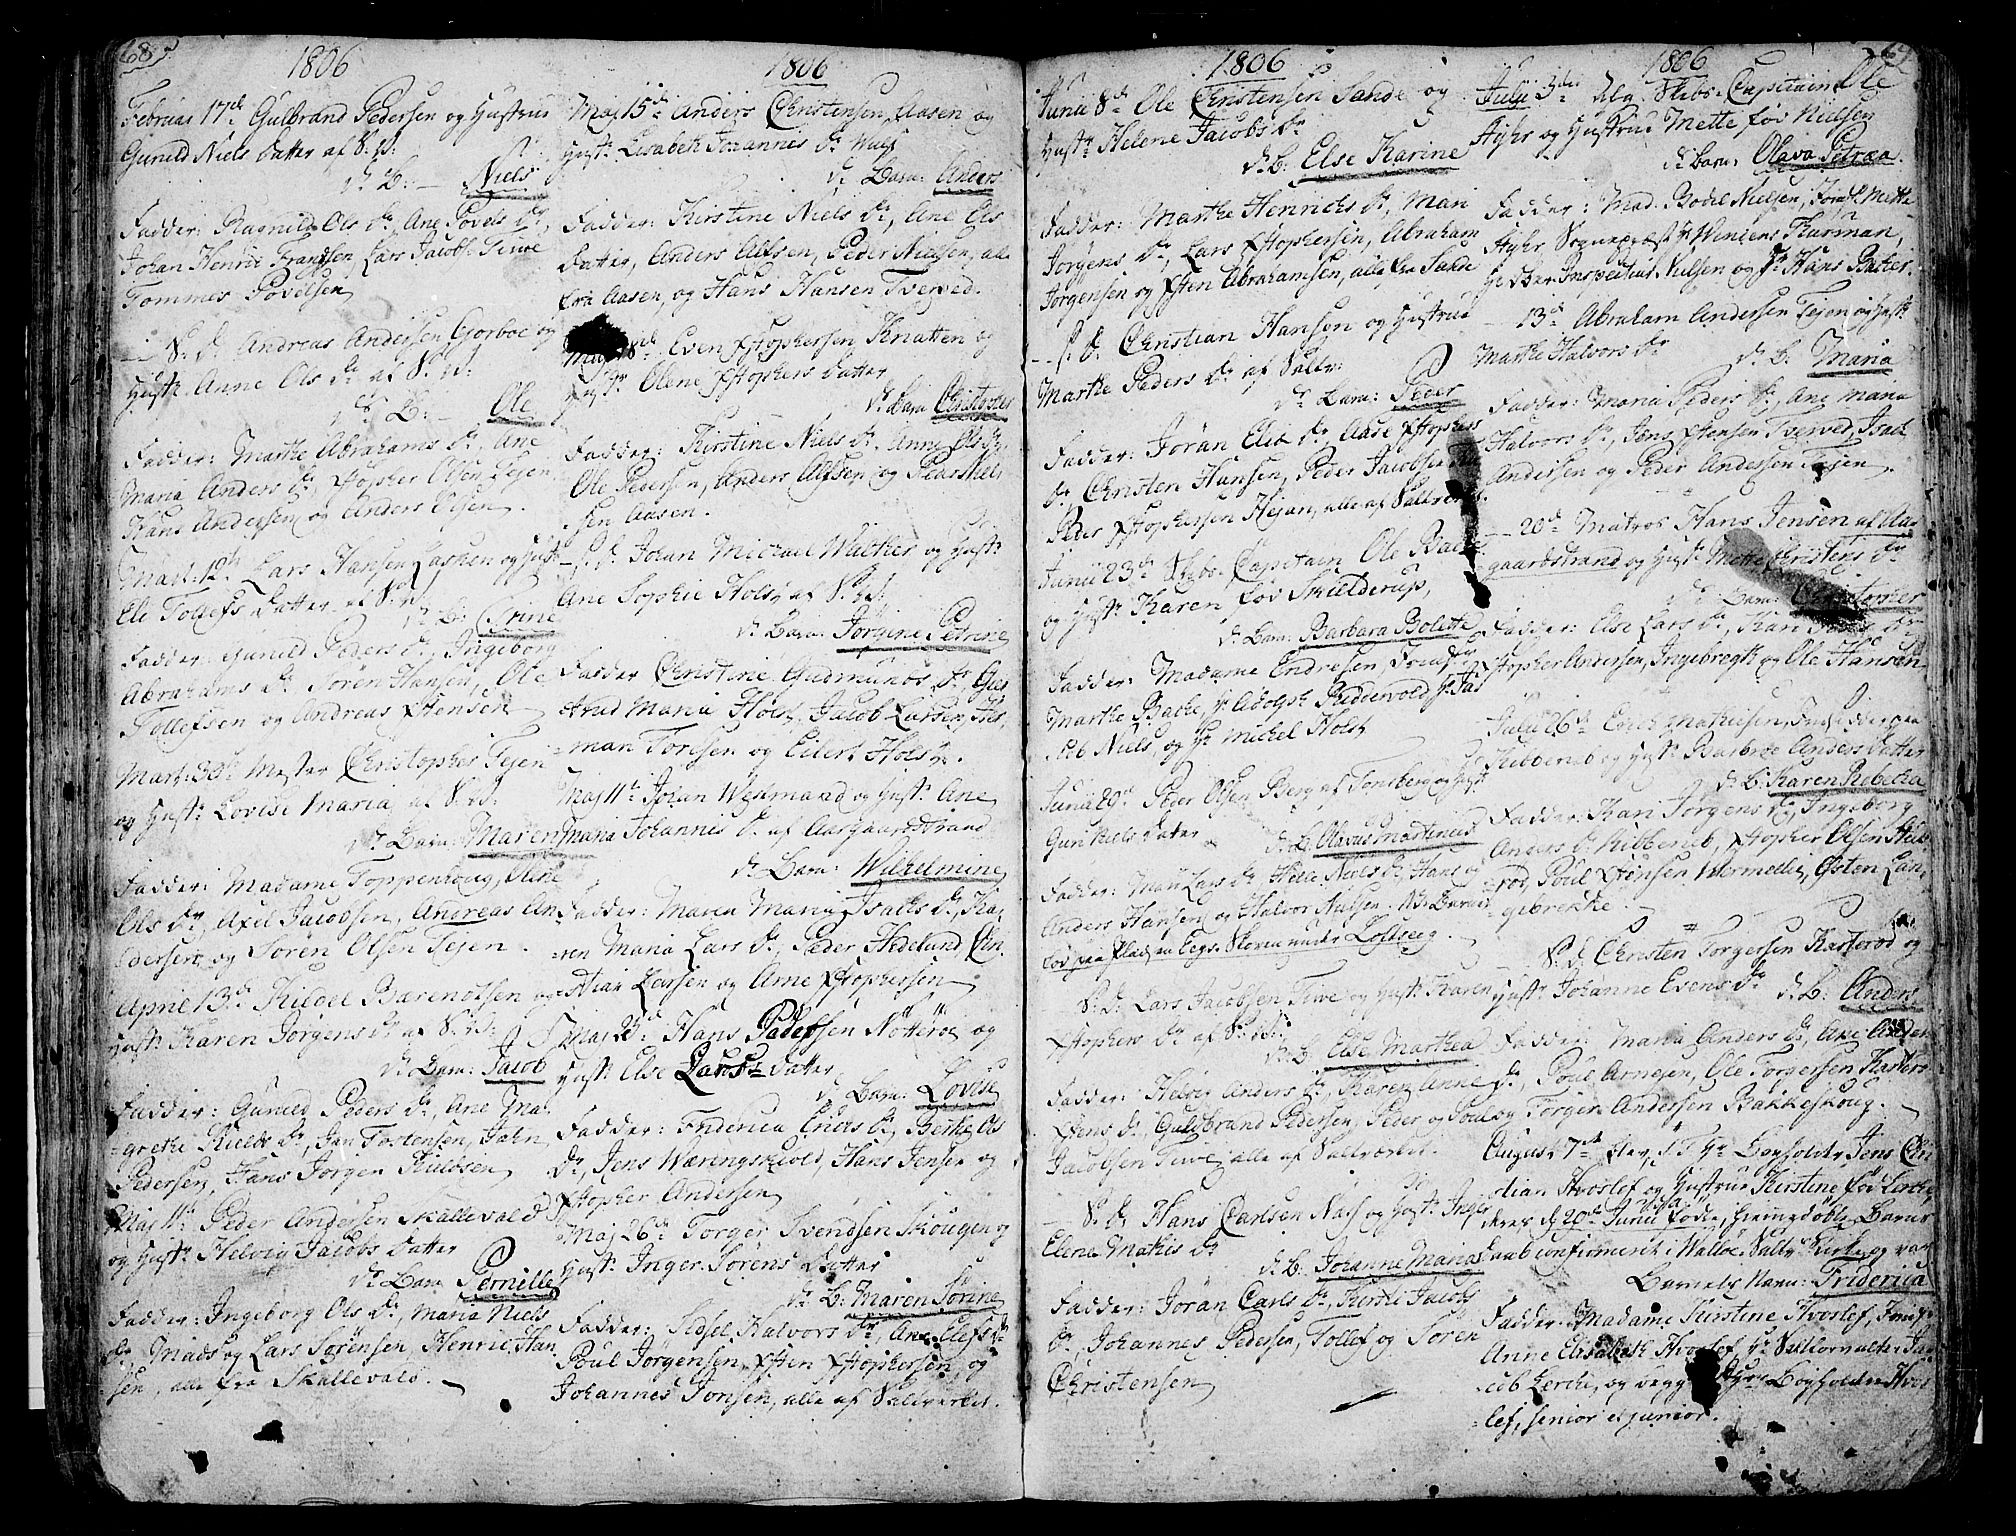 68
1806
Februar 17de Gulbrand Pedersen og Hustrue
Gunild Niels datter af S. V.
d. B. Niels
Fadder: Ragnild Ols dr, Ane Povels dr,
Johan Henric Frandsen, Lars Jacobs. Teive
Tommes Povelsen
S. d. Andreas Andersen Gorboe og
Hustr. Anne Ols dr af S. V.
d. B. Ole
Fadder: Marthe Abrahams dr, Ane
Maria Anders dr, Xstopher Olsen Tejen
Hans Andersen og Anders Olsen.
Mart: 12te Lars Hansen og Hustr
Eli Tollefs datter af S. V.
d. B. Trine
Fadder: Gunild Peders dr, Ingeborg
Abrahams dr, Søren Hansen, Ole
Tollefsen og Andreas Xstensen
Mart: 30te Mester Christopher Tejen
og Hustr. Lovise Maria af S. V.
d. Barn: Maren
Fadder: Madame Toppenhoug, Oline
Ols dr, Axel Jacobsen, Andreas An
dersen og Søren Olsen Tejen.
April 13de Kield Bærendtsen og
Hustr. Karen Jørgens dr af S. V.
d. Barn: Jacob
Fadder: Gunild Peders dr, Ane Ma-
grethe Kields dr, Jan Tostensen, Jahn
Pedersen, Hans Jørgen Kieldsen
Maj 11te Peder Andersen Skallevald
og Hustr. Helvig Jacobs datter
d. Barn Pernille
Fadder: Ingeborg Ols dr, Maria Niels
dr, Mads og Lars Sørensen, Henric Han
sen, alle fra Skallevald.
1806
Maj 15de Anders Christensen Aasen og
Hustr. Lisabeth Johannes dr
d. Barn: Anders
Fadder: Kirstine Niels dr, Ane Els
datter, Anders Alfsen, Peder Nielsen, alle
fra Aasen, og Hans Hansen Tverved.
Maj 18de Even Xstophersen Knatten og
Hustr Olene Xstophers datter
d. Barn Christopher
Fadder: Kirstine Niels dr, Anne Ols dr,
Ole Pedersen, Anders Alfsen og Lars Niel-
sen Aasen.
S. d. Johan Michael Walther og Hustr
Ane Sophie Holst af S. V.
d. Barn: Jørgine Petrine
Fadder Christine Gudmunds dr, Giær
trud Maria Holst, Jacob Larsen, Hel-
man Toresen og Eilert Holst.
Maj 11te Johan Wehmand og Hustr. Ane
Maria Johannis dr af Aasgaardstrand
d. Barn: Wilhelmine
Fadder: Maren Maria Isacks dr, Ka-
ren Maria Lars dr, Peder Hedelund, Chri-
stian Larsen og Arne Xstophersen
Maj 25de Hans Pedersen Nötteröe og
Hustr Else Lars datter
d. Barn: Lovise
Fadder: Friderica Enders dr, Berthe Ols
dr, Jens Wæringskiold, Hans Jensen og
Xstopher Andersen
Maj 26de Torger Svendsen Skougen og
Hustr. Inger Sørens datter
d. B: Maren Sörine
Fadder: Sidsel Halvors dr, Ane Elefs dr
Poul Jørgensen, Xsten Xstophersen, og
Johannes Jonsen, alle af Saltværket.
1806
Junii 8de Ole Christensen Sande og
Hustr Helene Jacobs dr
d. B. Else Karine
Fadder: Marthe Henrichs dr, Mari
Jørgens dr, Lars Xstophersen, Abraham
Jørgensen og Xsten Abrahamsen, alle fra Sande
S. d. Christian Hansen og Hustrue
Marthe Peders dr af Saltv:
d. Barn: Peder
Fadder: Joran Elie dr, Aase Xstophers
dr, Christen Hansen, Peder Jacobsen
Peder Xstophersen Hejan, alle af Saltværket.
Junii 23de Skibs-Capitain Ole Bache
og Hustr Karen fød Skielderup,
d. Barn: Barbara Bolette
Fadder: Madame Endresen, Jomfr
Marthe Bache, Hr Adolph Buddevold, Hr Ja-
cob Niels, og Hr Michel Holst
Junii 29de Peder Olsen Berg af Tonsberg og Hustr
Guri Niels datter
d. B. Olavus Martinus
Fadder: Mari Lars dr, Helle Niels dr, Hans og
Anders Hansen og Halvor Nielsen. NB. Barnet
fød paa Pladsen Eegs-Skoven under Lofteeg.
S. d. Lars Jacobsen Teive og Hustr. Karen
Xstophers dr af S. V.
d. B. Else Marthea
Fadder: Helvig Anders dr, Karen Anne
Xstens dr, Guldbrand Pedersen, Peder og Poul
Jacobsen Teive, alle af Saltværket.
S. d. Hans Carlsen Næs og Hustr. Inger
Elene Mathis dr
d. B. Johanne Maria
Fadder: Joran Carls dr, Kirsti Jacobs
dr, Johannes Pedersen, Tollef og Søren
Christensen
69
1806
Julii 3de Udg. Skibs-Capitain Ole
Hyhr og Hustrue Mette fød Nielsen
d. Barn: Olava Petrea.
Fadder: Mad. Bodel Nielsen, Jomfr Mette
Hyhr, Sognepræst Hr Wincens Harman,
Inspecteur Nielsen og Hr Hans Bache.
13de Abraham Andersen Tejen og Hustr
Marthe Halvors dr
d. B. Maria
Fadder: Maria Peders dr, Ane Maria
Halvors dr, Jens Xstensen Tverved, Isach
Andersen og Peder Andersen Tejen.
20de Matros Hans Jensen af Aas-
gaardstrand og Hustr Mette Christens dr
d. Barn: Christopher
Fadder: Else Lars dr, Kari dr
Xstopher Andersen, Ingebregth og Ole Hansen
Julii 26de Erich Mathiesen Indsidder paa
Ribbeneb og Hustr Barbroe Anders datter
d. B: Karen Rebecka
Fadder: Kari Jørgens dr, Ingeborg
Anders dr Ribbeneb, Xstopher Olsen
rød, Poul Xstensen Wermelle, Østen Lan-
gebrekke.
S. d. Christen Torgersen Kasserød og
Hustr. Johanne Evens dr
d. B: Anders
Fadder: Maria Anders dr, Ane Anders
dr, Poul Arnesen, Ole Torgersen Kasserø
og Torger Andersen Bakkeskoug.
August 7de blev, S. T. Hr Bogholder Jens Chri-
stian Hvoslef og Hustrue Kirstine fød Lerche
deres d 20de Junii fødte, hiemmedøbte Barns
Daab confirmeret i Walloe Saltv Kirke, og var
Barnets Navn: Friderica
Fadder: Madame Kirstine Hvoslef, Jomfr.
Anne Elisabeth Hvoslef, Hr Saltforvalter Ja-
cob Lerche, og begge Hrr Bogholder Hvos-
lef, senior et junior.